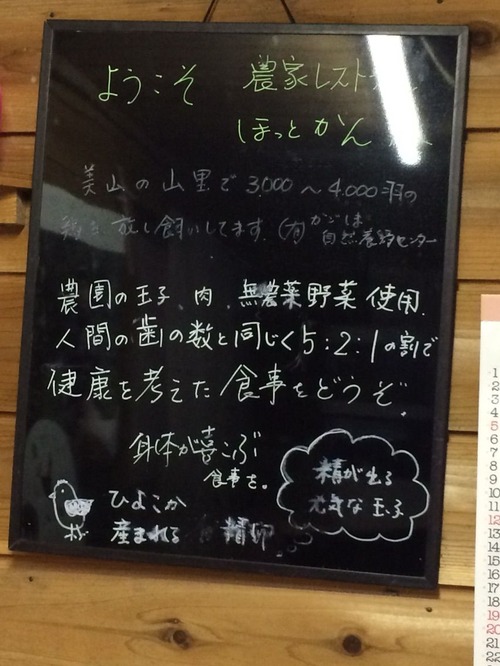 ようこそ 農家レストラン
ほっとかん
美山の山里で3,000〜4,000羽の
鶏を放し飼いしてます。(有)かごしま
自然養鶏センター
農園の玉子、肉、無農薬野菜使用。
人間の歯の数と同じく5:2:1の割で
健康を考えた食事をどうぞ。
身体が喜こぶ
食事を。
精が出る
元気な玉子
ひよこが
産まれる 精卵
1
2
3
4
5
6
7
8
9
10
11
12
13
14
15
16
17
18
19
20
21
22